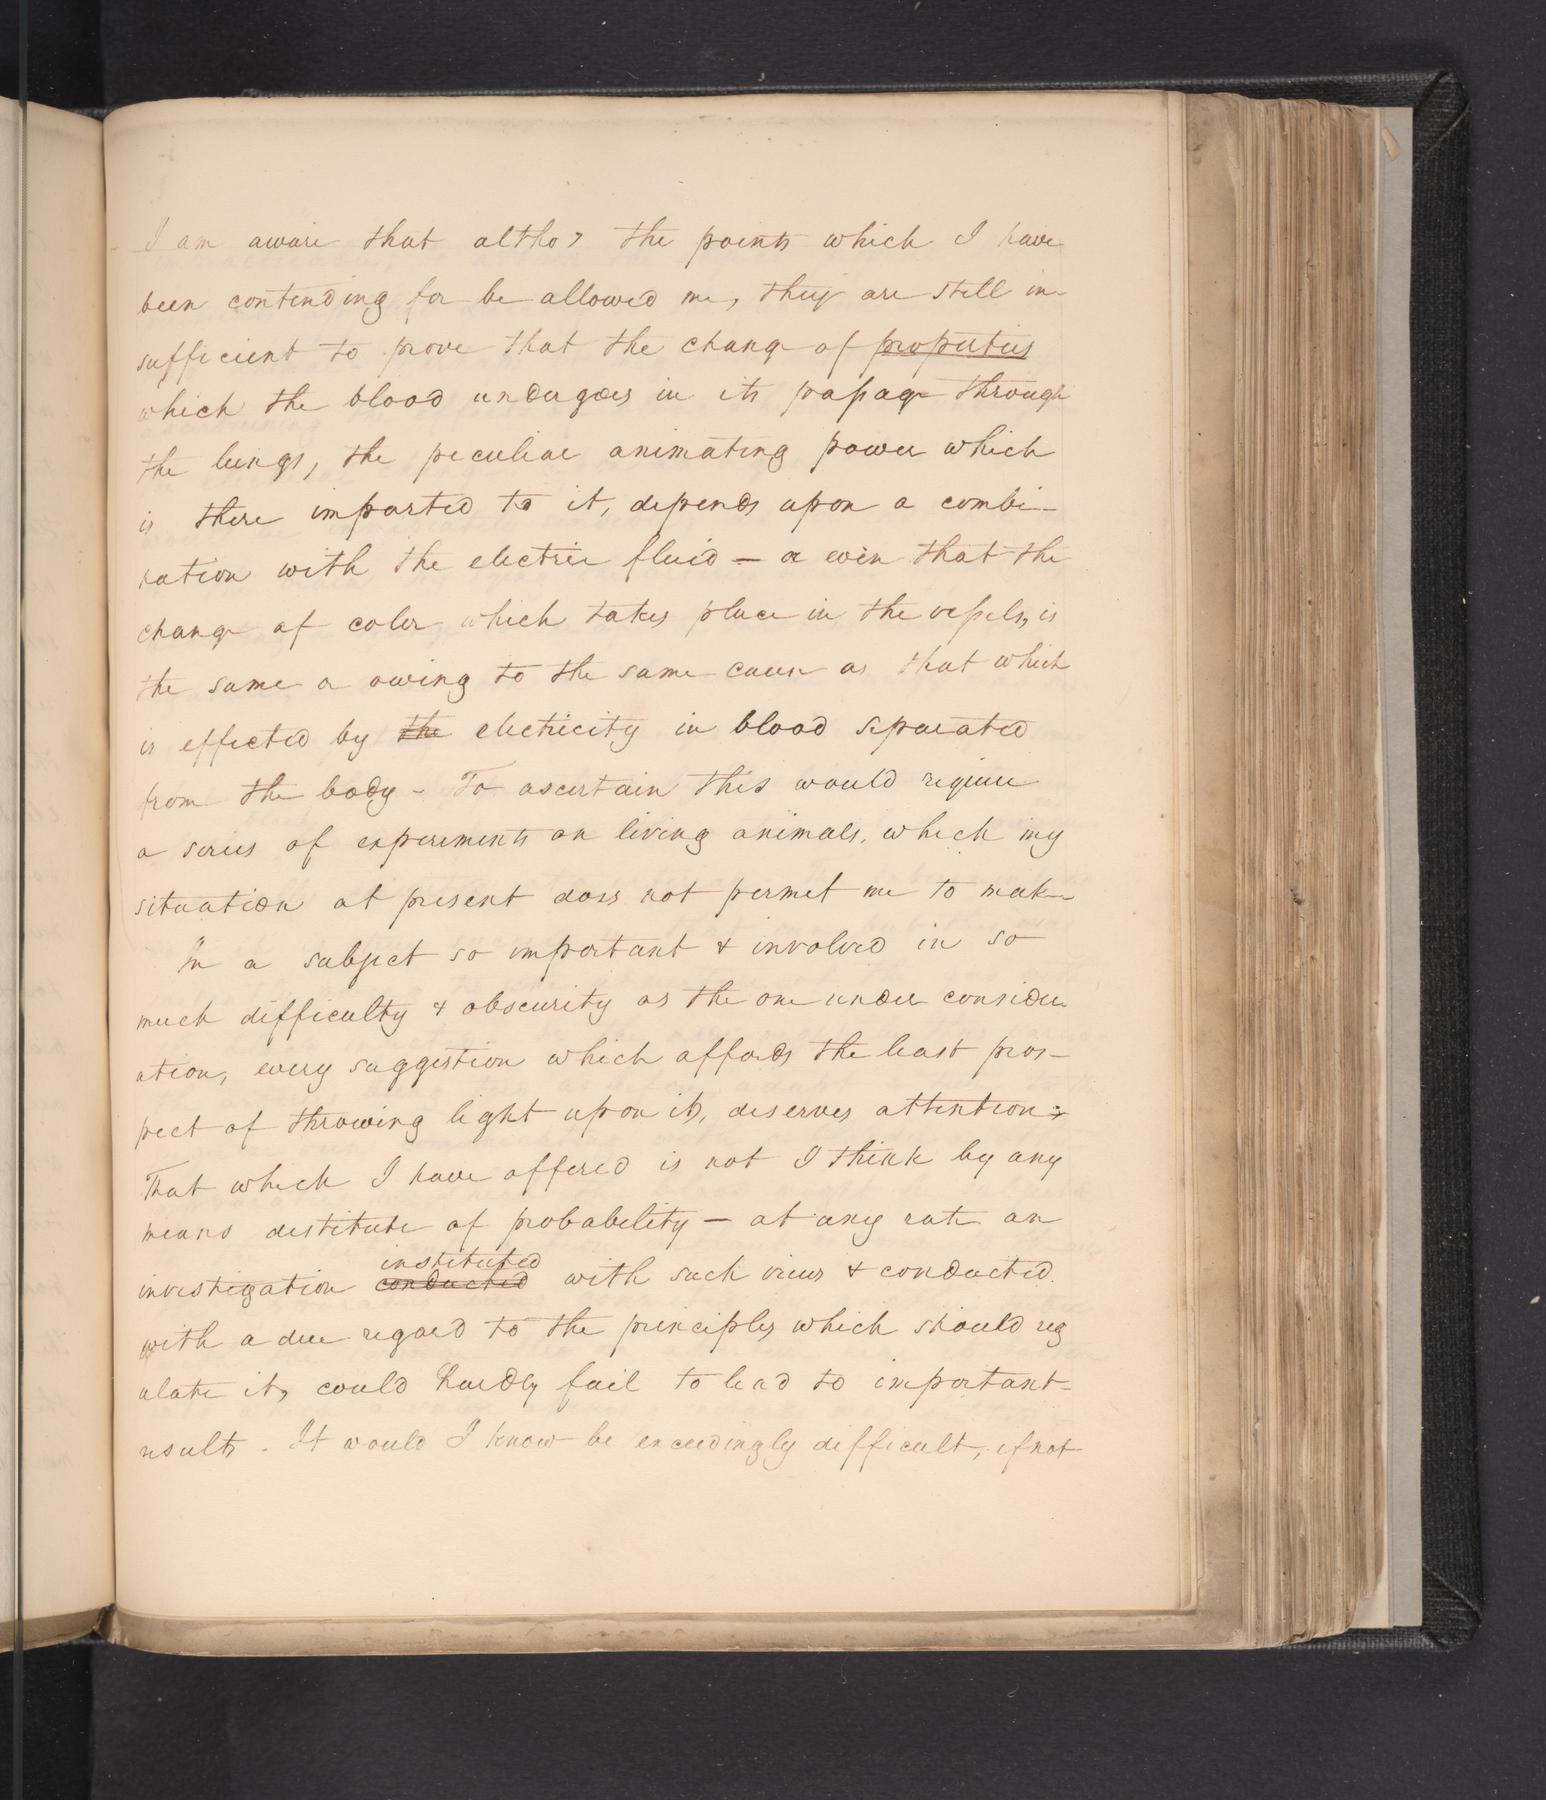 I am aware that altho' the points which I have
been contending for be allowed me, they are still in-
sufficient to prove that the change of properties
which the blood undergoes in its passage through
the lungs, the peculiar animating power which
is there imparted to it, depends upon a combi-
nation with the electric fluid — or even that the
change of color which takes place in the vessels, is
the same or owing to the same cause as that which
is effected by the electricity in blood separated
from the body - To ascertain this would require
a series of experiments on living animals, which my
situation at present does not permit me to make
In a subject so important & involved in so
much difficulty & obscurity as the one under consider
ation, every suggestion which affords the least pros-
pect of throwing light upon it, deserves attention;
That which I have offered is not I think by any
means destitute of probability — at any rate an
instituted
investigation conducted with such views & conducted
with a due regard to the principles which should reg
ulate it, could hardly fail to lead to important
results. It would I know be exceedingly difficult, if not